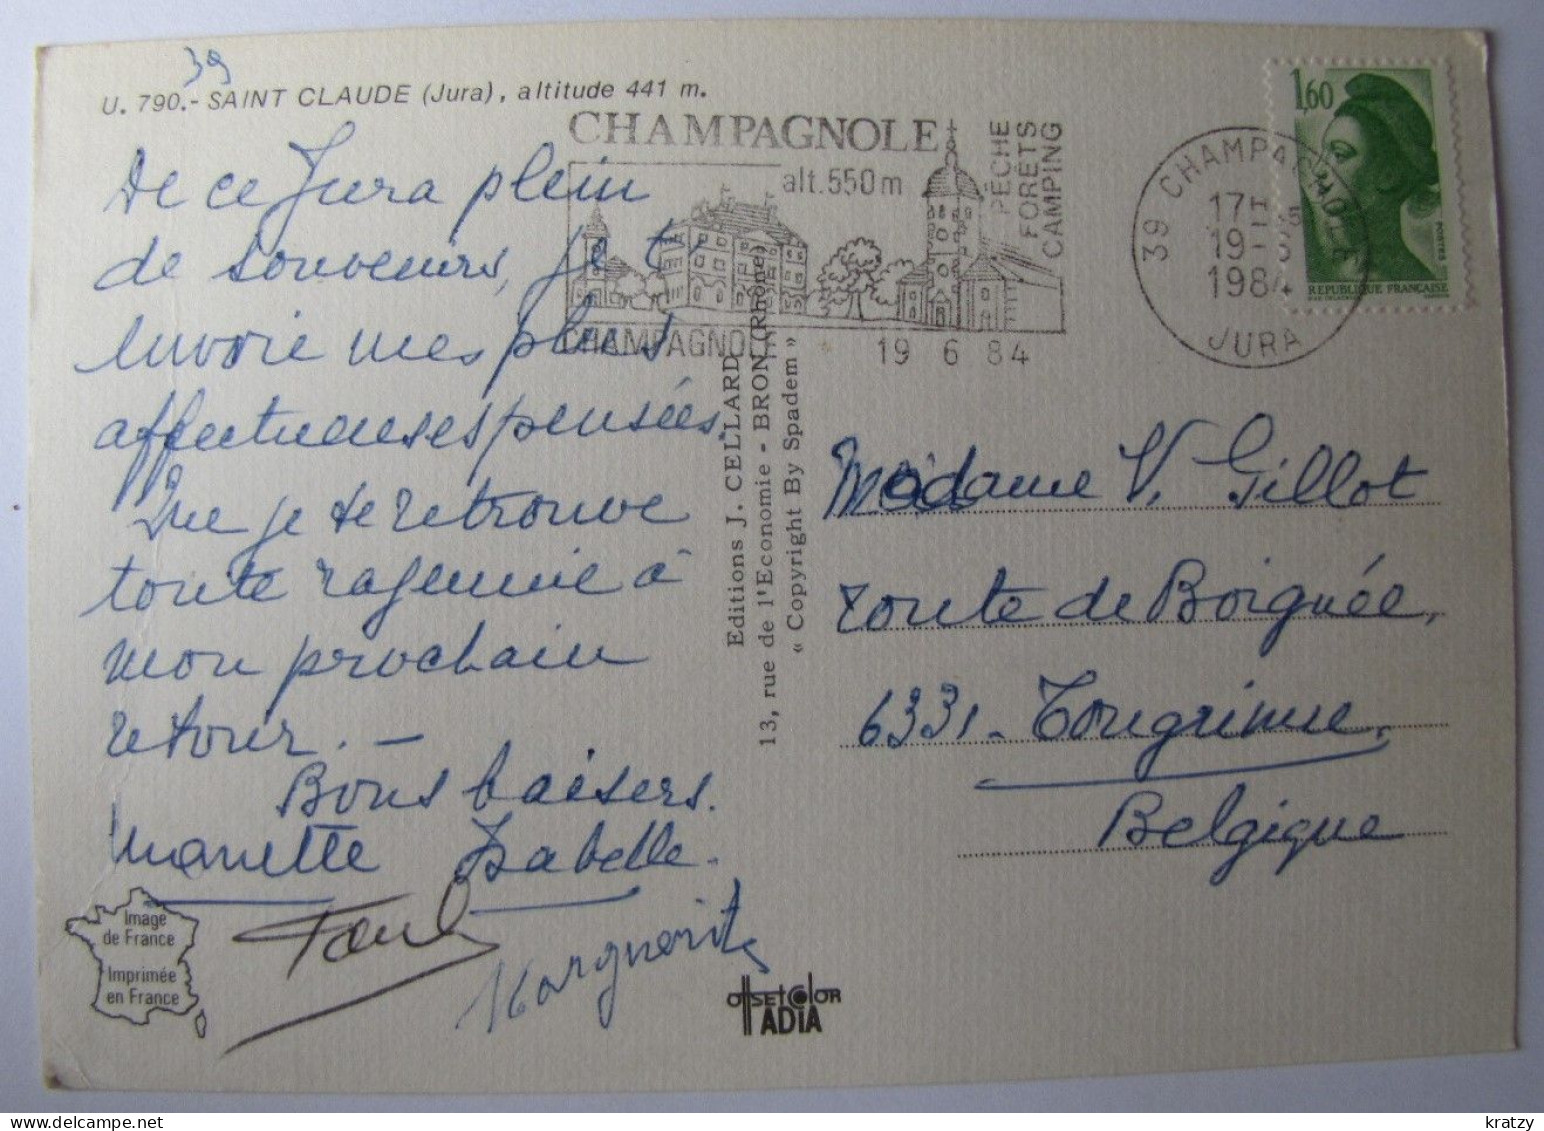 39
U. 790.- SAINT CLAUDE (Jura), altitude 441 m.
De ce Jura plein
de souvenirs, je t'
envoie mes plus
affectueuses pensées.
Que je te retrouve
toute rajeunie à
mon prochain
retour. —
Bons baisers.
Manette Isabelle.
Paul
Marguerite
Image
de France
Imprimée
en France
Editions J. CELLARD
13, rue de l'Economie - BRON (Rhône)
« Copyright By Spadem »
OFFSET COLOR
ADIA
CHAMPAGNOLE
alt.550m
PÊCHE
FORÊTS
CAMPING
CHAMPAGNOL
19 6 84
39 CHAMPAGNOLE
17H
19-6
1984
JURA
1,60
POSTES
REPUBLIQUE FRANÇAISE
Madame V. Gillot
route de Boignée,
6331 - Tongrinne,
Belgique
kratzy